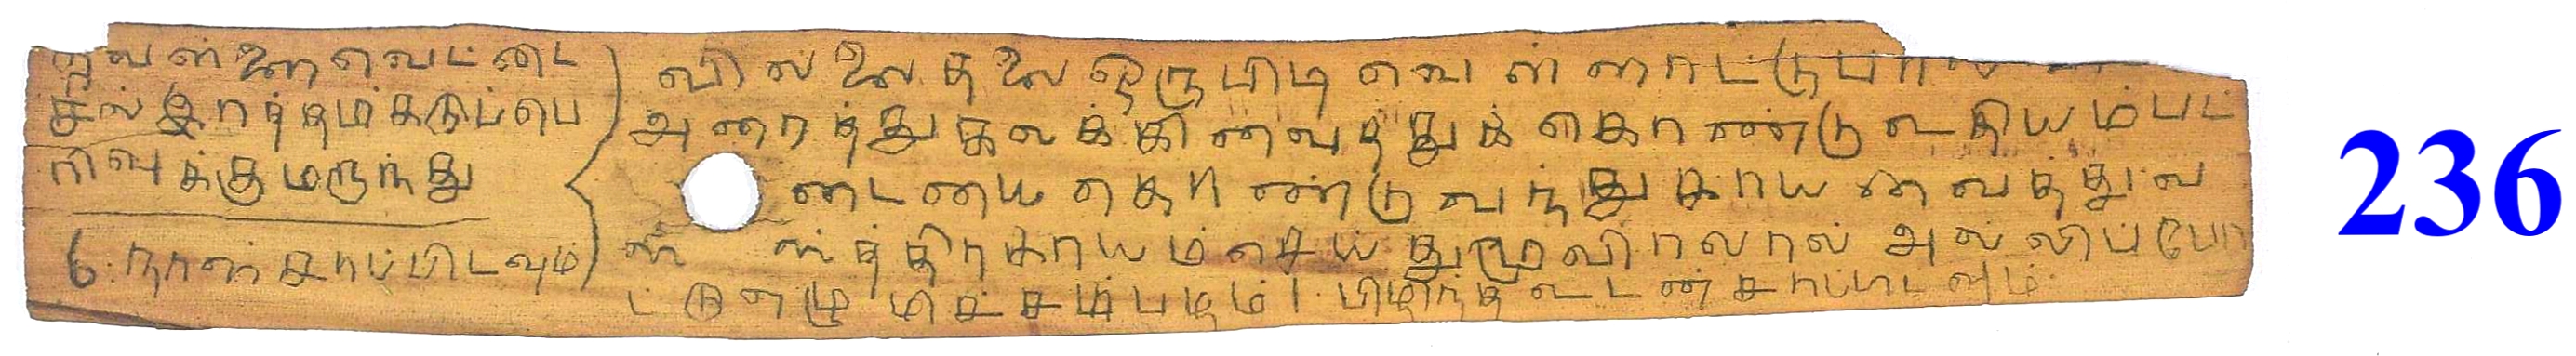 வெள்ளைவெட்டை
சூல் இரத்தம் கருப்பெ
ரிவுக்குமருந்து
6. நாள் சாப்பிடவும்
வில்லைதலை ஒருபிடி வெள்ளாட்டுப்பால்
அரைத்து கலக்கி வைத்துக் கொண்டு உதியம்பட்
டையை கொண்டுவந்து காய வைத்து வ
ஸ்த்திரகாயம் செய்து மூவிரலால் அள்ளிப் போ
ட்டு எழுமிச்சம்பழம். பிழிந்த உடன் சாப்பிடவும்
236